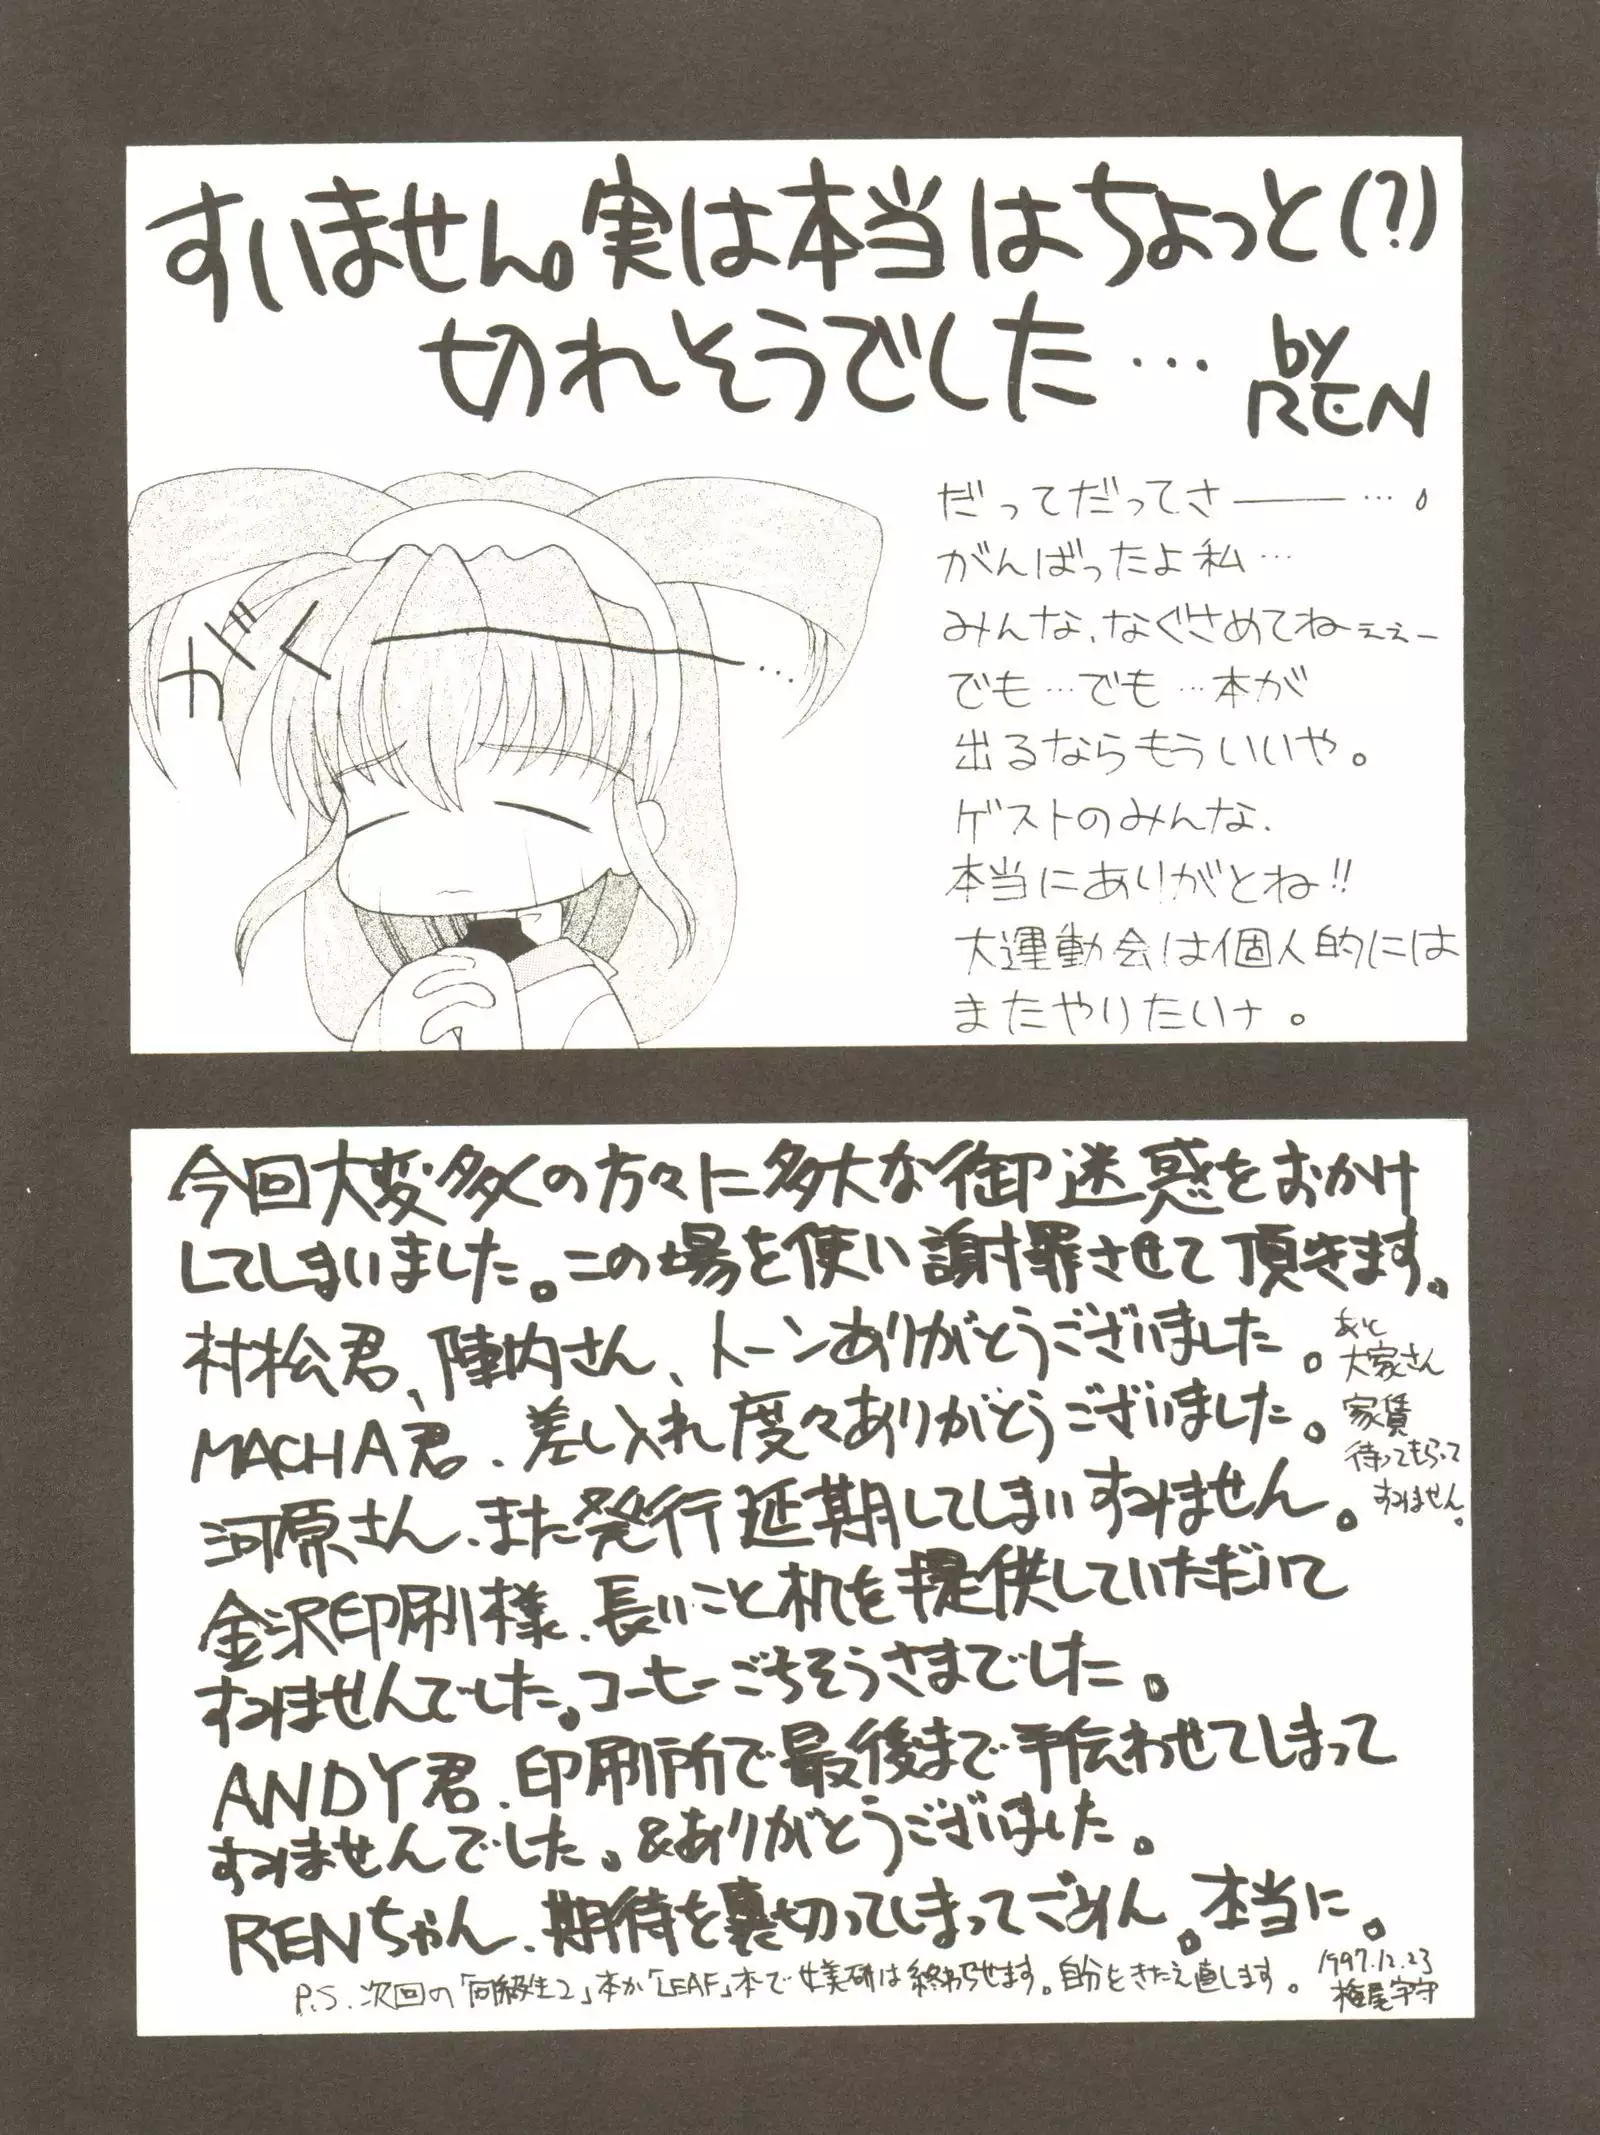 すいません。実は本当はちょっと(?)
切れそうでした…
by
REN
ガク…
だってだってさー…。
がんばったよ私…
みんな、なぐさめてねぇぇー
でも…でも…本が
出るならもういいや。
ゲストのみんな、
本当にありがとね!!
大運動会は個人的には
またやりたいナ。
今回大変多くの方々に多大な御迷惑をおかけ
してしまいました。この場を使い謝罪させて頂きます。
村松君、陣内さん、トーンありがとうございました。
MACHA君、差し入れ度々ありがとうございました。
河原さん、また発行延期してしまいすみません。
あと
大家さん
家賃
待ってもらって
すみません。
金沢印刷様、長いこと机を提供していただいて
すみませんでした。コーヒーごちそうさまでした。
ANDY君、印刷所で最後まで手伝わせてしまって
すみませんでした。&ありがとうございました。
RENちゃん、期待を裏切ってしまってごめん。本当に。
P.S.次回の「同級生2」本か「LEAF」本で女美研は終わらせます。自分をきたえ直します。
1997.12.23
梅尾宇守